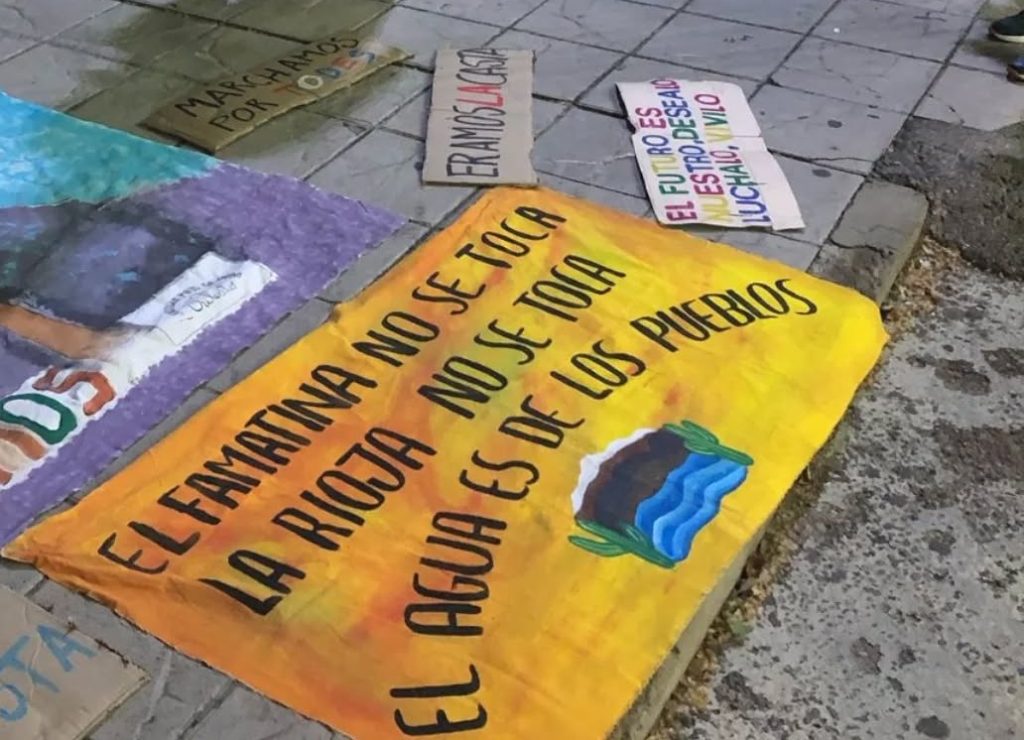 MARCHAMOS
POR TODES
ERAMOS LA CASTA
EL FUTURO ES
NUESTRO. DESEALO
LUCHALO, VIVILO
EL FAMATINA NO SE TOCA
LA RIOJA NO SE TOCA
EL AGUA ES DE LOS PUEBLOS